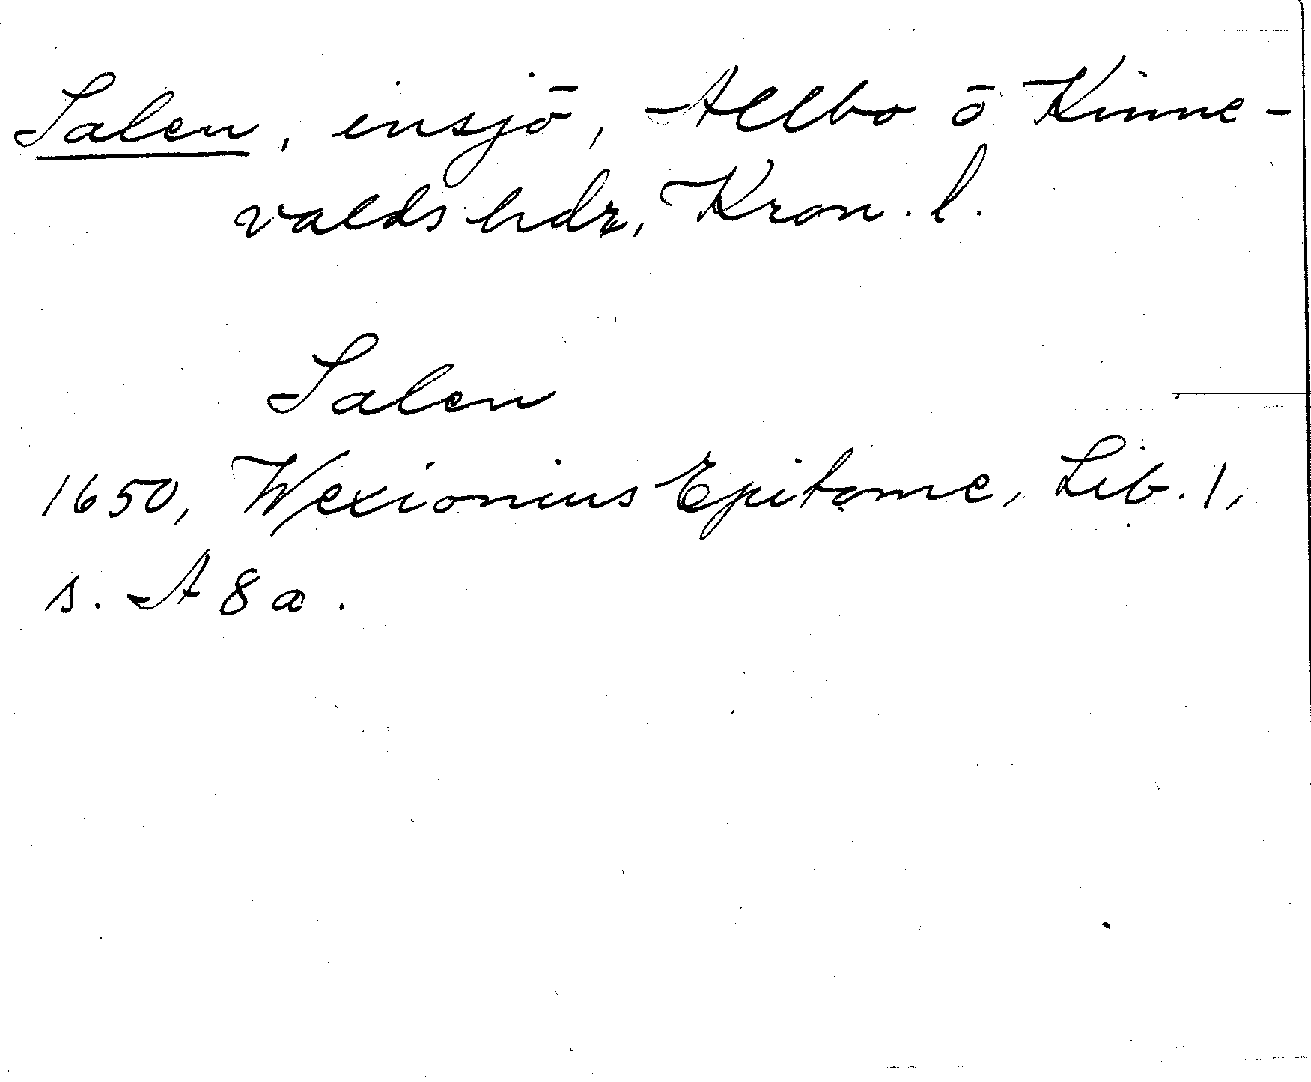 Salen, insjö, Allbo o Kinne-
valds hdr, Kron. l.
Salen
1650, Wexionius Epitome, Lib. 1,
s. A 8 a.